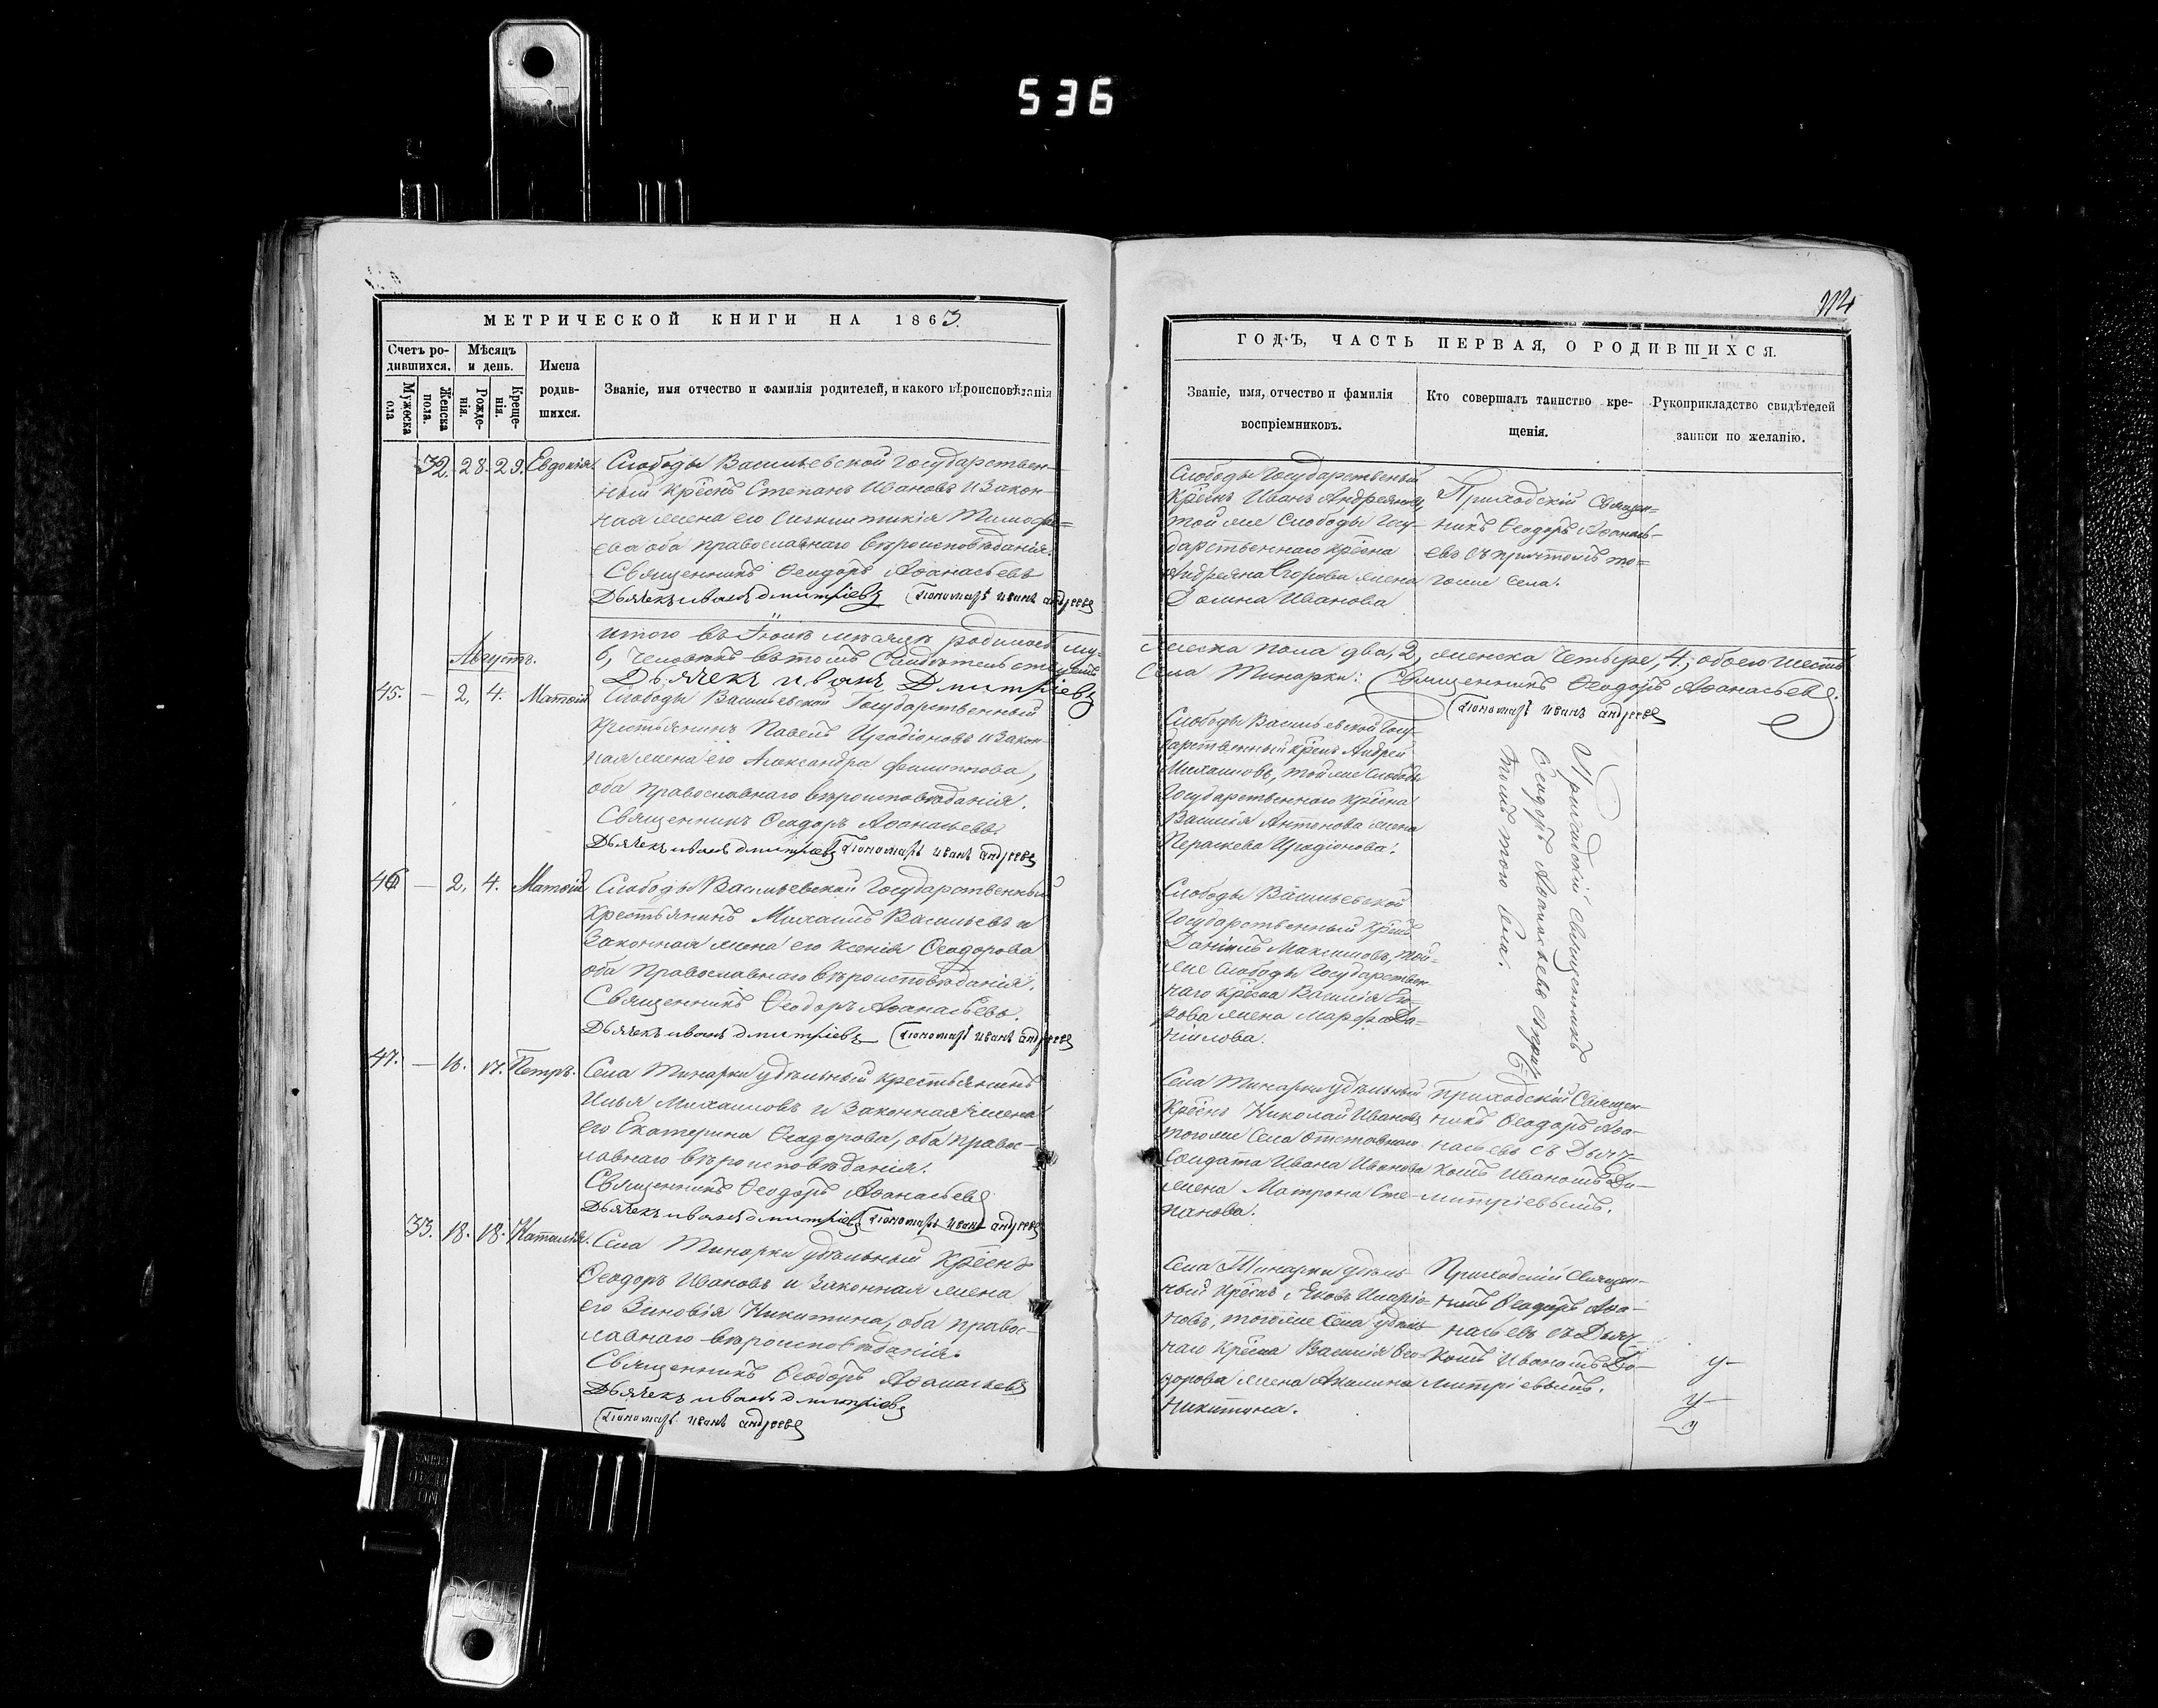 536
МЕТРИЧЕСКОЙ КНИГИ НА 1863.
Счетъ ро-
дившихся.
Мѣсяцъ
и день.
Имена
родив-
шихся.
Званіе, имя отчество и фамилія родителей, и какого вѣроисповѣданія
Мужеска
ола
Женска
пола.
Рожде-
нія.
Креще-
нія.
32. 28. 29. Евдокія. Слободы Васильевской Государствен-
ный Крѣснъ Степанъ Ивановъ и закон-
ная жена его Тимофе=
ева оба православнаго вѣроисповѣданія.
Священникъ Ѳеодоръ Аѳанасьевъ
Дьячекъ иванъ дмитріевъ Пономарь иванъ андреевъ
итого въ Іюлѣ мѣсяцѣ родилось му-
Августъ.
6, человѣкъ въ томъ свидѣтельствуютъ
Дьячекъ иванъ Дмитріевъ
45. — 2, 4. Матѳій Слободы Васильевской Государственный
Крестьянинъ Павелъ Иродіоновъ и закон-
ная жена его Александра филиппова,
оба православнаго вѣроисповѣданія.
Священникъ Ѳеодоръ Аѳанасьевъ
Дьячекъ иванъ дмитріевъ Пономарь иванъ андреевъ
46 — 2, 4. Матѳій Слободы Васильевской Государственный
Крестьянинъ Михаилъ Васильевъ и
Законная жена его Ксенія Ѳеодорова
оба Православнаго вѣроисповѣданія.
Священникъ Ѳеодоръ Аѳанасьевъ.
Дьячекъ иванъ дмитріевъ Пономарь иванъ андреевъ
47. — 16. 17. Петръ. Села Тинарки удѣльный крестьянинъ
Илья Михаиловъ и Законная жена
его Екатерина Ѳеодорова, оба правос-
лавнаго вѣроисповѣданія.
Священникъ Ѳеодоръ Аѳанасьевъ
Дьячекъ иванъ дмитріевъ Пономарь иванъ андреевъ
33. 18. 18. Наталія. Села Тинарки удѣльный Крѣснъ
Ѳеодоръ Ивановъ и Законная жена
его Зиновія Никитина, оба правос-
лавнаго вѣроисповѣданія.
Священникъ Ѳеодоръ Аѳанасьевъ
Дьячекъ иванъ дмитріевъ
Пономарь иванъ андреевъ
114
ГОДЪ, ЧАСТЬ ПЕРВАЯ, О РОДИВШИХСЯ.
Званіе, имя, отчество и фамилія
воспріемниковъ.
Кто совершалъ таинство кре-
щенія.
Рукоприкладство свидѣтелей
записи по желанію.
Слободы Государственый
Крѣснъ Иванъ Андреяновъ,
той же Слободы Госу-
дарственнаго Крѣсна
Андреяна Егорова жена
Домна Иванова
Приходскій Священ=
никъ Ѳеодоръ Аѳанась-
евъ съ причтомъ то=
гоже села.
жеска пола два, 2, женска четыре, 4, обоего шесть
Села Тинарки: Священникъ Ѳеодоръ Аѳанасьевъ.
Пономарь иванъ андреевъ
Слободы Васильевской Госу-
дарственный Крѣснъ Андрей
Михаиловъ, той же Слободы
Государственнаго Крѣсна
Василія Антонова жена
Параскева Иродіонова.
Приходскій Священникъ
Ѳеодоръ Аѳанасьевъ съ прич-
томъ того села.
Слободы Васильевской
Государственный Крѣснъ
Даніилъ Максимовъ, той-
же Слободы Государствен-
наго Крѣсна Василія Его-
рова жена Марфа Да-
ніилова.
Села Тинарки удѣльный
Крѣснъ Николай Ивановъ
тогоже Села отставнаго
Солдата Ивана Иванова
жена Матрона Сте-
панова.
Приходскій Священ-
никъ Ѳеодоръ Аѳа-
насьевъ съ Дьяч-
комъ Иваномъ Ди-
митріевымъ.
Села Тинарки удѣль-
ный Крѣснъ Яковъ Иларіо-
новъ, тогоже Села удѣль-
наго Крѣсна Василія Ѳео-
дорова жена Акилина
Никитина.
Приходскій Священ-
никъ Ѳеодоръ Аѳа-
насьевъ съ Дьяч-
комъ Иваномъ Ди-
митріевымъ.